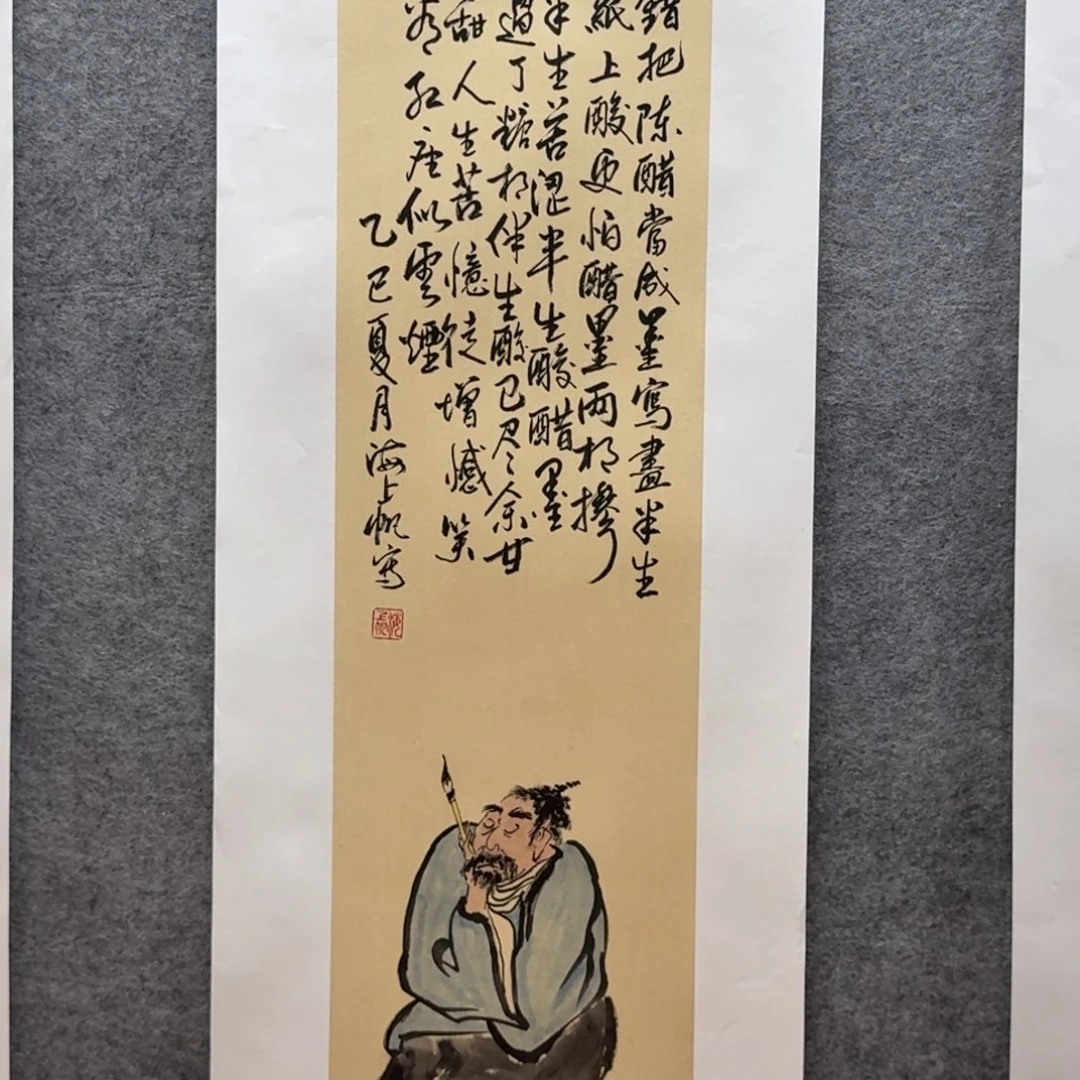 錯把陈醋當成墨寫盡半生
紙上酸更怕醋墨兩相摻
半生苦澀半生酸醋墨
了糖相伴生酸已尽余甘
甜人生苦憶徒增憾笑
看红尘似雲煙
乙巳夏月海上帆寫